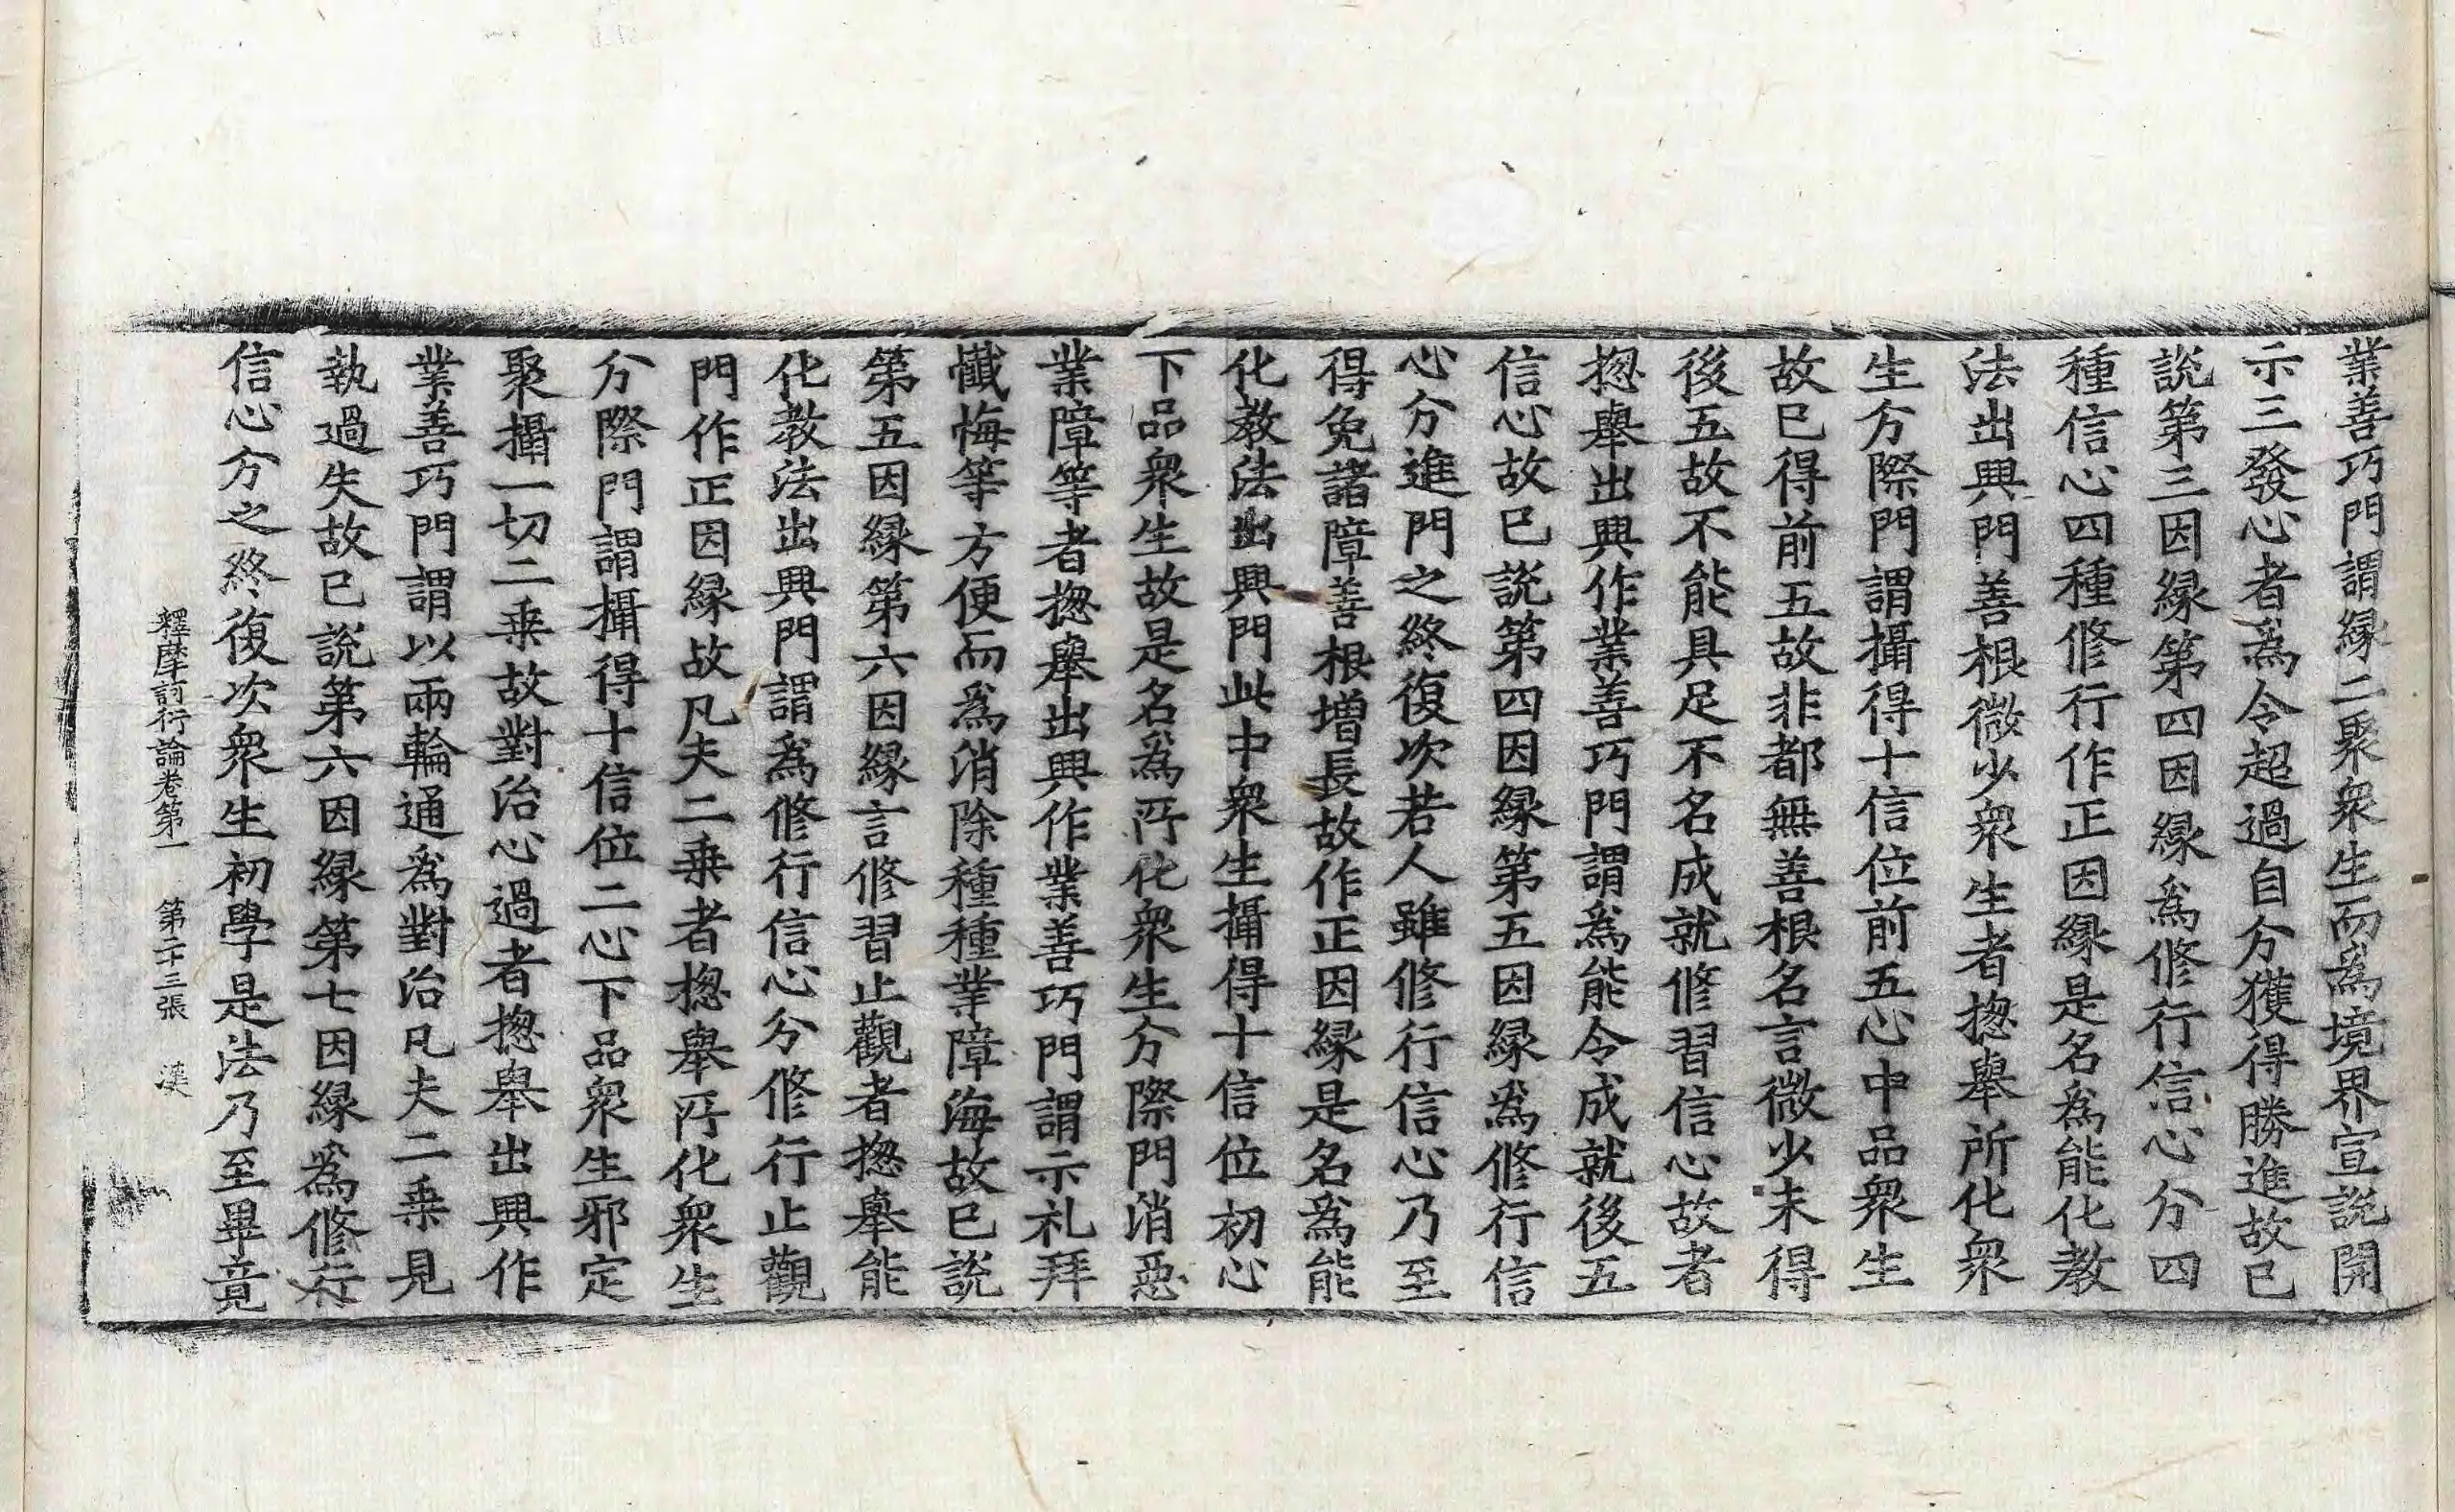 業善巧門謂縁二聚衆生而爲境界宣說開
示三發心者爲令超過自分獲得勝進故已
說第三因縁第四因縁爲修行信心分四
種信心四種修行作正因縁是名爲能化教
法出興門善根微少衆生者揔舉所化衆
生分際門謂攝得十信位前五心中品衆生
故已得前五故非都無善根名言微少未得
後五故不能具足不名成就修習信心故者
揔舉出興作業善巧門謂爲能令成就後五
信心故已說第四因縁第五因縁爲修行信
心分進門之終復次若人雖修行信心乃至
得免諸障善根增長故作正因縁是名爲能
化教法出興門此中衆生攝得十信位初心
下品衆生故是名爲所化衆生分際門消惡
業障等者揔舉出興作業善巧門謂示礼拜
懺悔等方便而爲消除種種業障海故已說
第五因縁第六因縁言修習止觀者揔舉能
化教法出興門謂爲修行信心分修行止觀
門作正因縁故凡夫二乗者揔舉所化衆生
分際門謂攝得十信位二心下品衆生邪定
聚攝一切二乗故對治心過者揔舉出興作
業善巧門謂以兩輪通爲對治凡夫二乗見
執過失故已說第六因縁第七因縁爲修行
信心分之終復次衆生初學是法乃至畢竟
釋摩訶衍論卷第一 第二十三張 漢